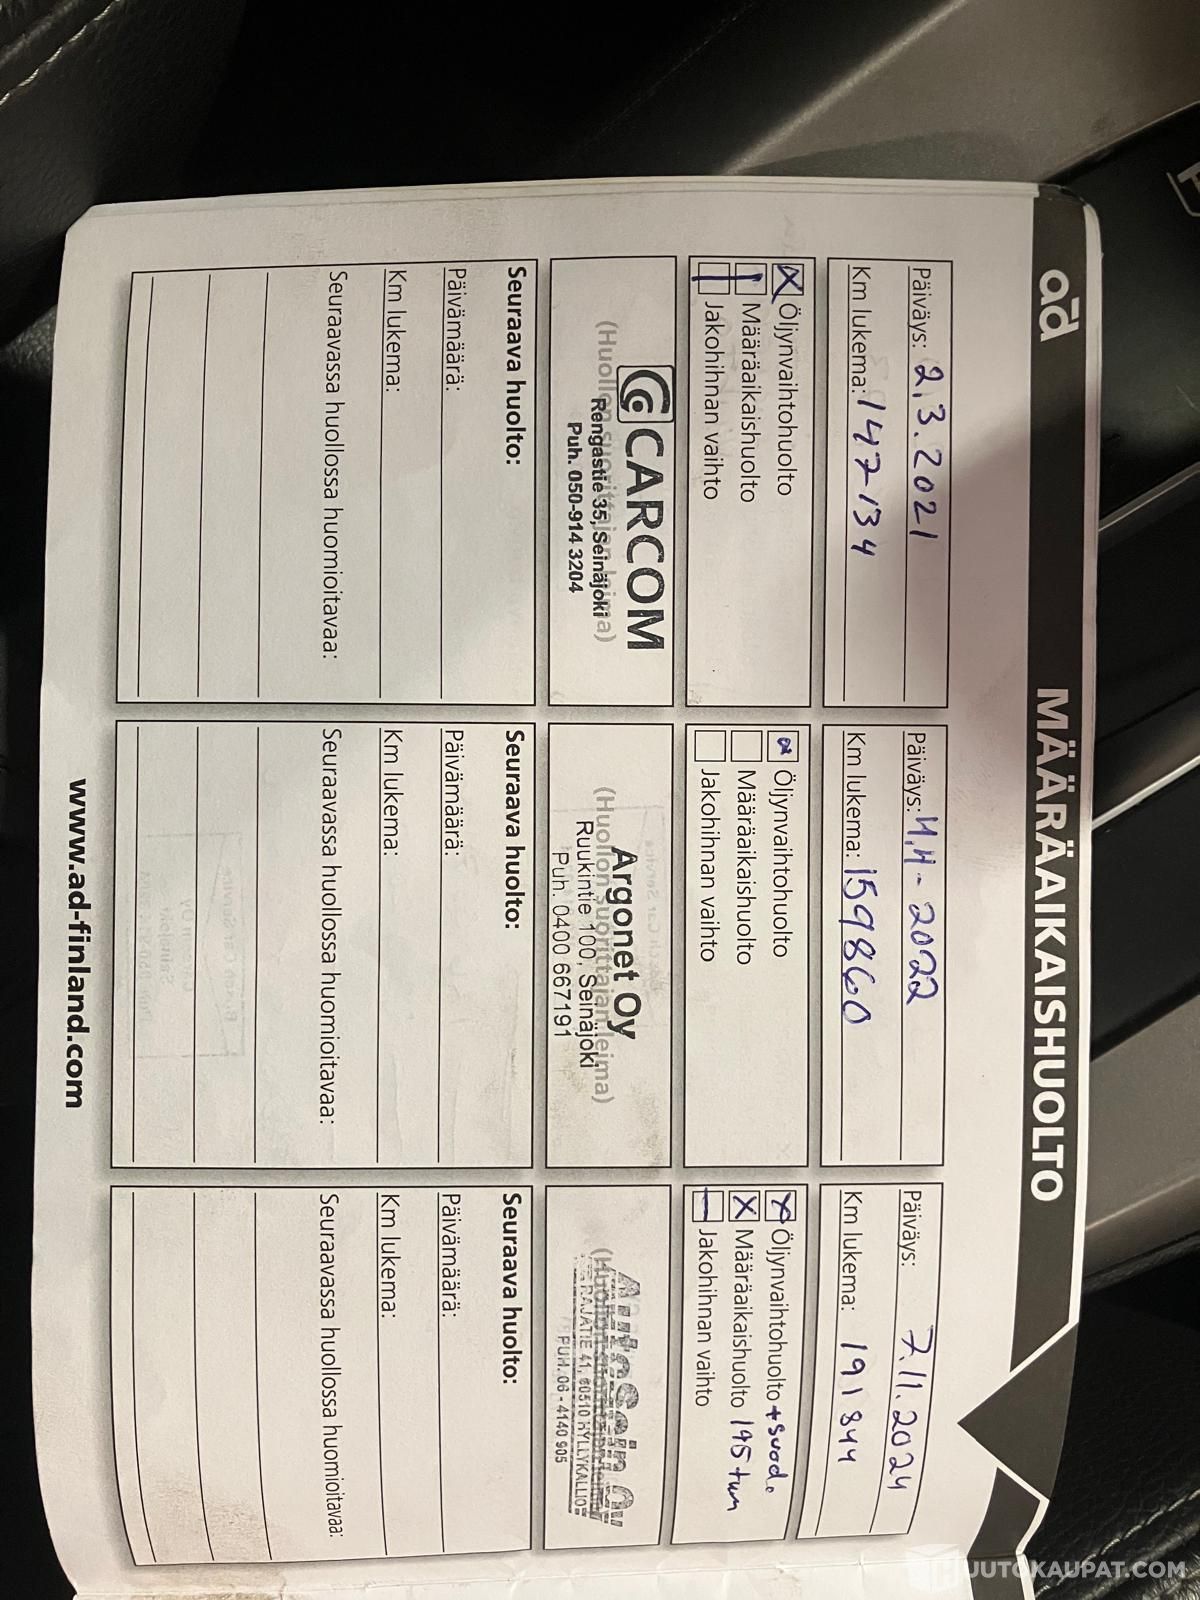 ad MÄÄRÄAIKAISHUOLTO
Päiväys: 2.3.2021
Km lukema: 147134
Öljynvaihtohuolto
Määräaikaishuolto
Jakohihnan vaihto
(Huollon suorittajan leima)
CARCOM
Rengastie 35, Seinäjoki
Puh. 050-914 3204
Seuraava huolto:
Päivämäärä:
Km lukema:
Seuraavassa huollossa huomioitavaa:
Päiväys: 4.4-2022
Km lukema: 159860
Öljynvaihtohuolto
Määräaikaishuolto
Jakohihnan vaihto
(Huollon suorittajan leima)
Argonet Oy
Ruukintie 100, Seinäjoki
Puh. 0400 667191
Seuraava huolto:
Päivämäärä:
Km lukema:
Seuraavassa huollossa huomioitavaa:
Päiväys: 7.11.2024
Km lukema: 191844
Öljynvaihtohuolto + suod.
Määräaikaishuolto 195 tkm
Jakohihnan vaihto
(Huollon suorittajan leima)
AutoSein Oy
RAJATIE 41, 60510 HYLLYKALLIO
PUH. 06 - 4140 905
Seuraava huolto:
Päivämäärä:
Km lukema:
Seuraavassa huollossa huomioitavaa:
www.ad-finland.com
HUUTOKAUPAT.COM